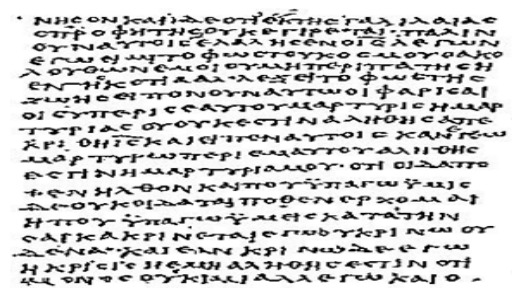 ΝΗϹΟΝ ΚΑΙ ΙΔΕ ΟΤΙ ΕΚ ΤΗϹ ΓΑΛΙΛΑΙΑϹ
Ο ΠΡΟΦΗΤΗϹ ΟΥΚ ΕΓΙΡΕΤΑΙ· ΠΑΛΙΝ
ΟΥΝ ΑΥΤΟΙϹ ΕΛΑΛΗϹΕΝ Ο ΙϹ ΛΕΓΩΝ
ΕΓΩ ΕΙΜΙ ΤΟ ΦΩϹ ΤΟΥ ΚΟϹΜΟΥ· Ο ΑΚΟ
ΛΟΥΘΩΝ ΕΜΟΙ ΟΥ ΜΗ ΠΕΡΙΠΑΤΗϹΗ
ΕΝ ΤΗ ϹΚΟΤΙΑ ΑΛ ΕΞΕΙ ΤΟ ΦΩϹ ΤΗϹ
ΖΩΗϹ ΕΙΠΟΝ ΟΥΝ ΑΥΤΩ ΟΙ ΦΑΡΙϹΑΙ
ΟΙ ϹΥ ΠΕΡΙ ϹΕΑΥΤΟΥ ΜΑΡΤΥΡΙϹ Η ΜΑΡ
ΤΥΡΙΑ ϹΟΥ ΟΥΚ ΕϹΤΙΝ ΑΛΗΘΗϹ ΑΠΕ
ΚΡΙΘΗ ΙϹ ΚΑΙ ΕΙΠΕΝ ΑΥΤΟΙϹ ΚΑΝ ΕΓΩ
ΜΑΡΤΥΡΩ ΠΕΡΙ ΕΜΑΥΤΟΥ ΑΛΗΘΗϹ
ΕϹΤΙΝ Η ΜΑΡΤΥΡΙΑ ΜΟΥ· ΟΤΙ ΟΙΔΑ ΠΟ
ΘΕΝ ΗΛΘΟΝ ΚΑΙ ΠΟΥ ΫΠΑΓΩ ΫΜΙϹ
ΔΕ ΟΥΚ ΟΙΔΑΤΑΙ ΠΟΘΕΝ ΕΡΧΟΜΑΙ
Η ΠΟΥ ΫΠΑΓΩ ΫΜΕΙϹ ΚΑΤΑ ΤΗΝ
ϹΑΡΚΑ ΚΡΙΝΕΤΑΙ ΕΓΩ ΟΥ ΚΡΙΝΩ ΟΥ
ΔΕΝΑ· ΚΑΙ ΕΑΝ ΚΡΙΝΩ ΔΕ ΕΓΩ
Η ΚΡΙϹΙϹ Η ΕΜΗ ΑΛΗΘΗϹ ΕϹΤΙΝ ΟΤΙ
ΜΟΝΟϹ ΟΥΚ ΙΜΙ ΑΛΛ ΕΓΩ ΚΑΙ Ο